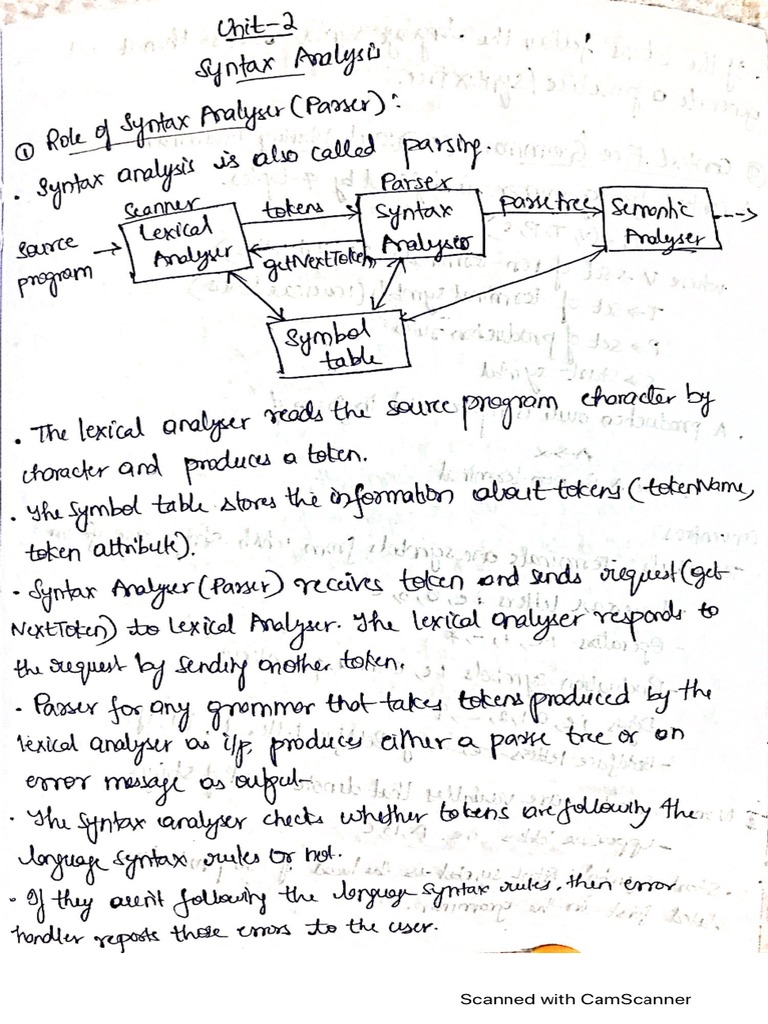 Unit-2
Syntax Analysis
① Role of Syntax Analyser (Parser):
· Syntax analysis is also called parsing.
Scanner
Parser
source program
Lexical Analyser
tokens
getNextToken
Syntax Analyser
parse tree
Semantic Analyser
Symbol table
· The lexical analyser reads the source program character by
character and produces a token.
· The symbol table stores the information about tokens (tokenName,
token attribute).
· Syntax Analyser (Parser) receives token and sends request (get-
NextToken) to Lexical Analyser. The lexical analyser responds to
the request by sending another token.
· Parser for any grammar that takes tokens produced by the
lexical analyser as i/p, produces either a parse tree or an
error message as output-
· The Syntax analyser checks whether tokens are following the
language syntax rules or not.
· If they aren't following the language syntax rules, then error
handler reports those errors to the user.
Scanned with CamScanner